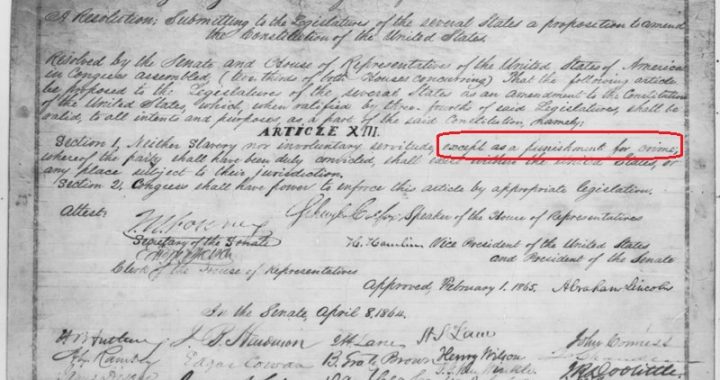 A Resolution: Submitting to the Legislatures of the several States a proposition to amend
the Constitution of the United States.
Resolved by the Senate and House of Representatives of the United States of America
in Congress assembled, (two thirds of both Houses concurring) That the following article
be proposed to the Legislatures of the several States as an amendment to the Constitution
of the United States, which, when ratified by three-fourths of said Legislatures, shall be
valid, to all intents and purposes, as a part of the said Constitution, namely:
ARTICLE XIII.
Section 1, Neither Slavery nor involuntary servitude, except as a punishment for crime,
whereof the party shall have been duly convicted, shall exist within the United States, or
any place subject to their jurisdiction.
Section 2, Congress shall have power to enforce this article by appropriate legislation.
Attest:
Schuyler Colfax, Speaker of the House of Representatives
J. W. Forney
Secretary of the Senate
H. Hamlin Vice President of the United States
and President of the Senate
Clerk of the House of Representatives
Approved, February 1, 1865. Abraham Lincoln
In the Senate, April 8, 1864.
J. B. Henderson
J H Lane
John Conness
Edgar Cowan
B. Gratz Brown
Henry Wilson
J. R. Doolittle